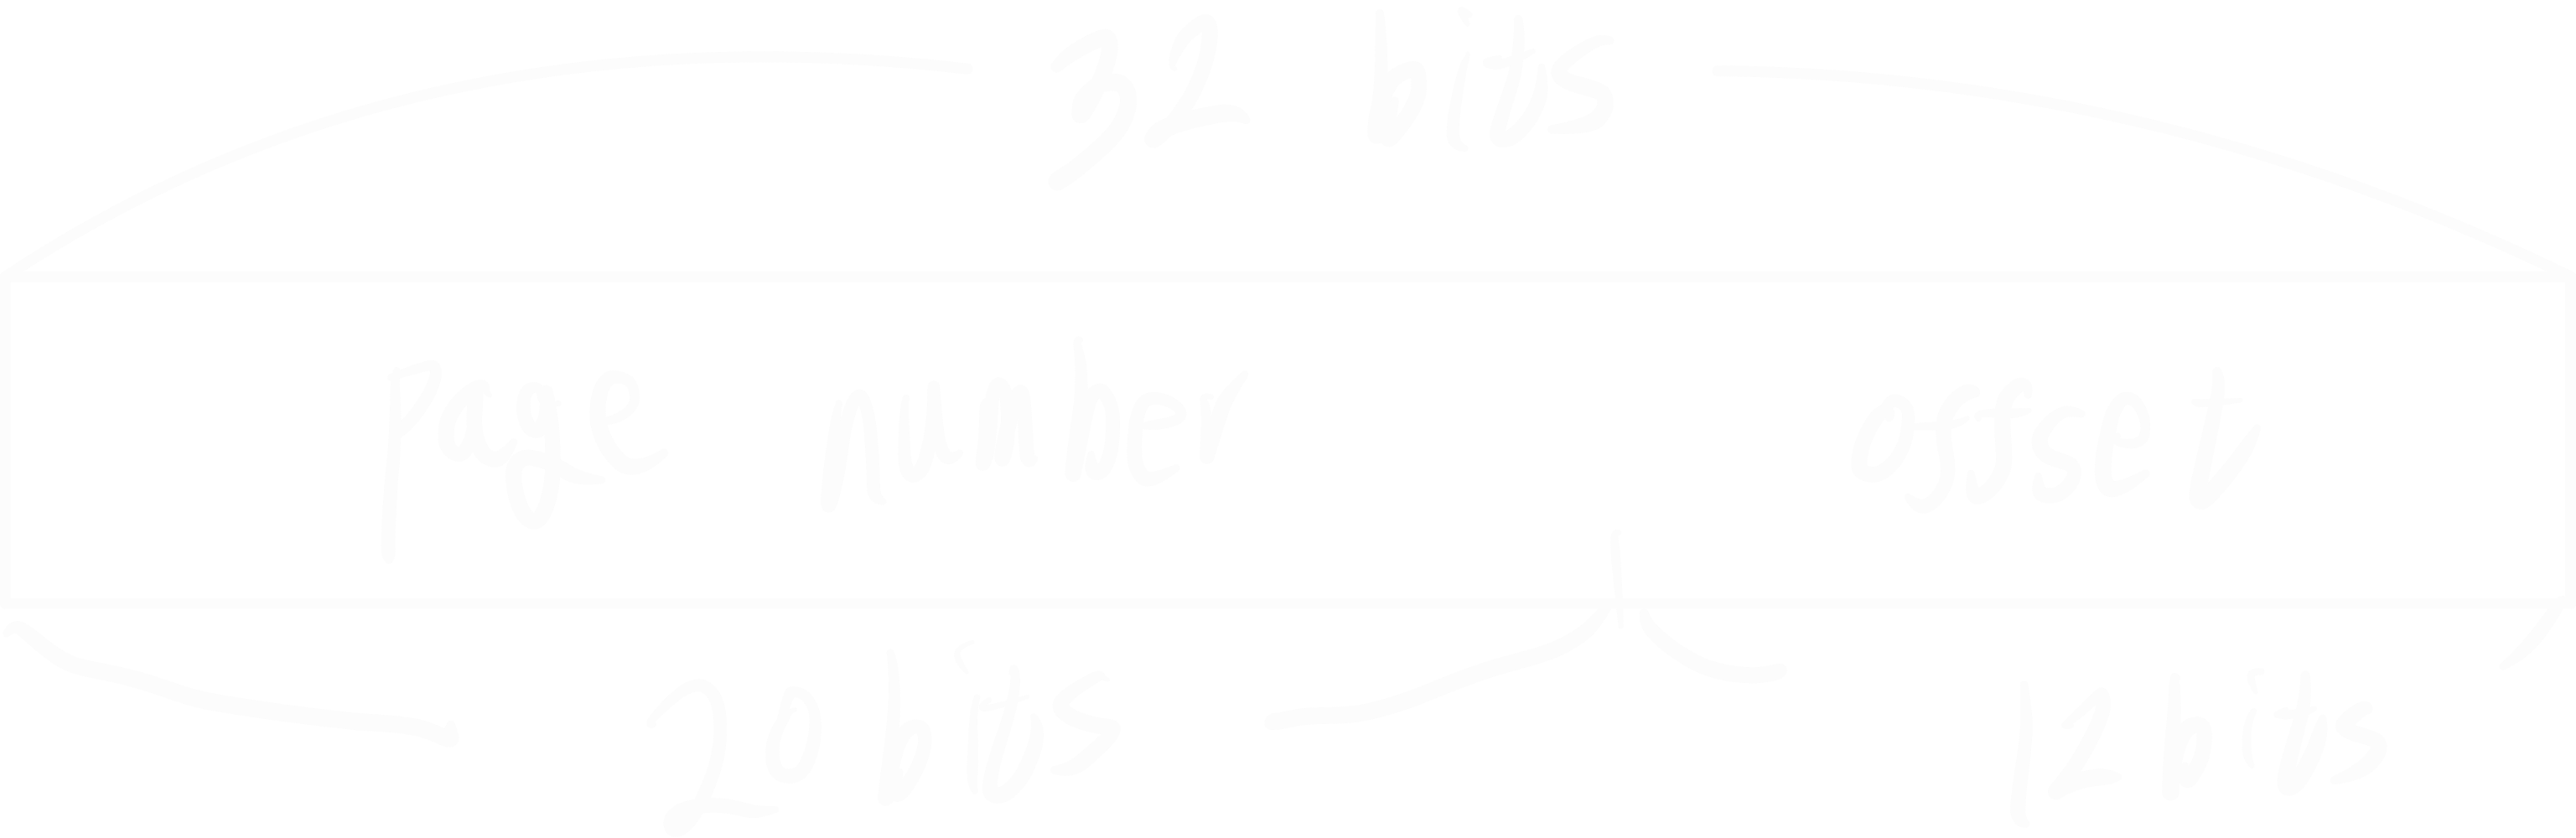 32 bits
page number offset
20 bits 12 bits